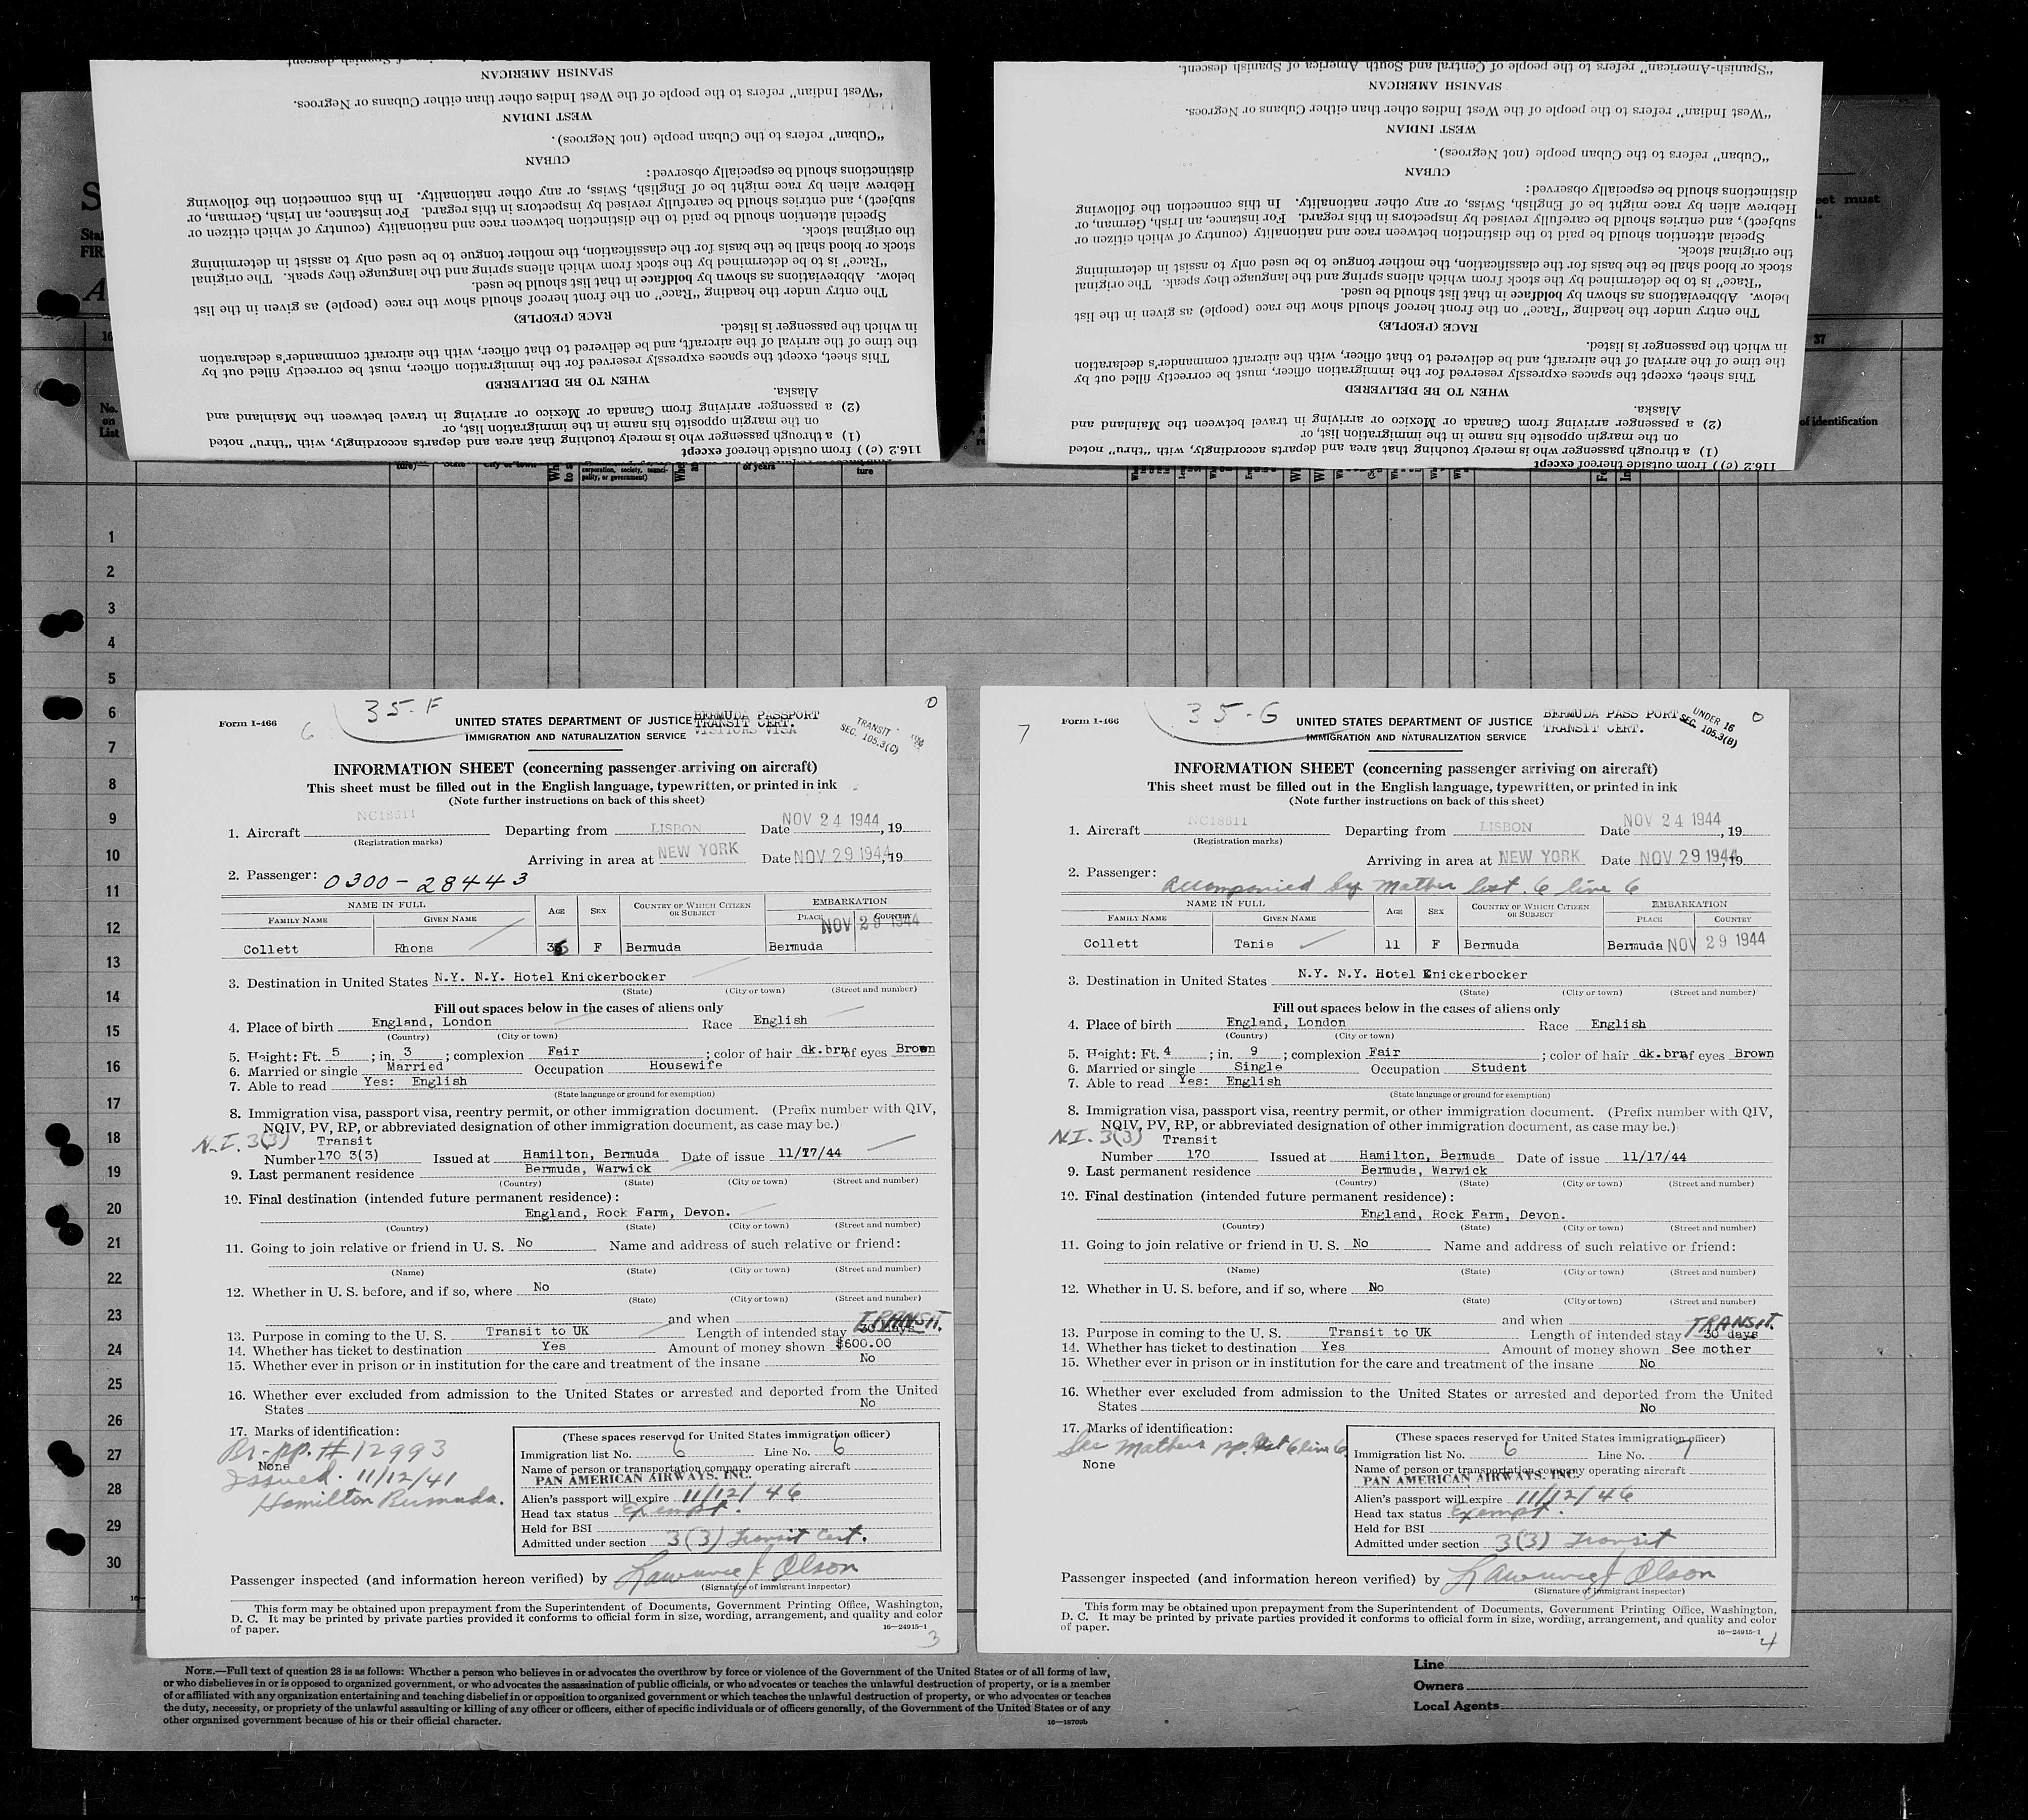 Spanish descent
SPANISH AMERICAN
"West Indian" refers to the people of the West Indies other than either Cubans or Negroes.
WEST INDIAN
"Cuban" refers to the Cuban people (not Negroes).
CUBAN
distinctions should be especially observed:
Hebrew alien by race might be of English, Swiss, or any other nationality. In this connection the following
subject), and entries should be carefully revised by inspectors in this regard. For instance, an Irish, German, or
Special attention should be paid to the distinction between race and nationality (country of which citizen or
the original stock.
stock or blood shall be the basis for the classification, the mother tongue to be used only to assist in determining
"Race" is to be determined by the stock from which aliens spring and the language they speak. The original
below. Abbreviations as shown by boldface in that list should be used.
The entry under the heading "Race" on the front hereof should show the race (people) as given in the list
RACE (PEOPLE)
in which the passenger is listed.
the time of the arrival of the aircraft, and be delivered to that officer, with the aircraft commander's declaration
This sheet, except the spaces expressly reserved for the immigration officer, must be correctly filled out by
WHEN TO BE DELIVERED
Alaska.
(2) a passenger arriving from Canada or Mexico or arriving in travel between the Mainland and
on the margin opposite his name in the immigration list, or
(1) a through passenger who is merely touching that area and departs accordingly, with "thru" noted
116.2 (c)) from outside thereof except
"Spanish-American" refers to the people of Central and South America of Spanish descent.
SPANISH AMERICAN
"West Indian" refers to the people of the West Indies other than either Cubans or Negroes.
WEST INDIAN
"Cuban" refers to the Cuban people (not Negroes).
CUBAN
distinctions should be especially observed:
Hebrew alien by race might be of English, Swiss, or any other nationality. In this connection the following
subject), and entries should be carefully revised by inspectors in this regard. For instance, an Irish, German, or
Special attention should be paid to the distinction between race and nationality (country of which citizen or
the original stock.
stock or blood shall be the basis for the classification, the mother tongue to be used only to assist in determining
"Race" is to be determined by the stock from which aliens spring and the language they speak. The original
below. Abbreviations as shown by boldface in that list should be used.
The entry under the heading "Race" on the front hereof should show the race (people) as given in the list
RACE (PEOPLE)
in which the passenger is listed.
the time of the arrival of the aircraft, and be delivered to that officer, with the aircraft commander's declaration
This sheet, except the spaces expressly reserved for the immigration officer, must be correctly filled out by
WHEN TO BE DELIVERED
Alaska.
(2) a passenger arriving from Canada or Mexico or arriving in travel between the Mainland and
on the margin opposite his name in the immigration list, or
(1) a through passenger who is merely touching that area and departs accordingly, with "thru" noted
116.2 (c)) from outside thereof except
must
37
No. on List
of identification
ture) State City or town
corporation, society, munici-
pality, or government)
of years
ture
1
2
3
4
5
6
7
8
9
10
11
12
13
14
15
16
17
18
19
20
21
22
23
24
25
26
27
28
29
30
Form I-466
6
35-F
UNITED STATES DEPARTMENT OF JUSTICE
IMMIGRATION AND NATURALIZATION SERVICE
BERMUDA PASSPORT
TRANSIT CERT.
VISITORS VISA
TRANSIT
SEC. 105.3(C)
0
INFORMATION SHEET (concerning passenger arriving on aircraft)
This sheet must be filled out in the English language, typewritten, or printed in ink
(Note further instructions on back of this sheet)
1. Aircraft NC18611 Departing from LISBON Date NOV 24 1944, 19
(Registration marks)
Arriving in area at NEW YORK Date NOV 29 1944, 19
2. Passenger: 0300-28443
NAME IN FULL AGE SEX COUNTRY OF WHICH CITIZEN OR SUBJECT EMBARKATION
FAMILY NAME GIVEN NAME PLACE COUNTRY
NOV 29 1944
Collett Rhona 35 F Bermuda Bermuda
3. Destination in United States N.Y. N.Y. Hotel Knickerbocker
(State) (City or town) (Street and number)
Fill out spaces below in the cases of aliens only
4. Place of birth England, London Race English
(Country) (City or town)
5. Height: Ft. 5 ; in. 3 ; complexion Fair ; color of hair dk.brn of eyes Brown
6. Married or single Married Occupation Housewife
7. Able to read Yes: English
(State language or ground for exemption)
8. Immigration visa, passport visa, reentry permit, or other immigration document. (Prefix number with QIV,
NQIV, PV, RP, or abbreviated designation of other immigration document, as case may be.)
N.I. 3(3) Transit
Number 170 3(3) Issued at Hamilton, Bermuda Date of issue 11/17/44
9. Last permanent residence Bermuda, Warwick
(Country) (State) (City or town) (Street and number)
10. Final destination (intended future permanent residence):
England, Rock Farm, Devon.
(Country) (State) (City or town) (Street and number)
11. Going to join relative or friend in U. S. No Name and address of such relative or friend:
(Name) (State) (City or town) (Street and number)
12. Whether in U. S. before, and if so, where No
(State) (City or town) (Street and number)
and when
TRANSIT.
13. Purpose in coming to the U. S. Transit to UK Length of intended stay 30 days
14. Whether has ticket to destination Yes Amount of money shown $600.00
15. Whether ever in prison or in institution for the care and treatment of the insane No
16. Whether ever excluded from admission to the United States or arrested and deported from the United
States No
17. Marks of identification:
Br. pp. # 12993
None
Issued. 11/12/41
Hamilton Bermuda.
(These spaces reserved for United States immigration officer)
Immigration list No. 6 Line No. 6
Name of person or transportation company operating aircraft
PAN AMERICAN AIRWAYS, INC.
Alien's passport will expire 11/12/46
Head tax status Exempt.
Held for BSI
Admitted under section 3(3) Transit Cert.
Passenger inspected (and information hereon verified) by Lawrence J Olson
(Signature of immigrant inspector)
This form may be obtained upon prepayment from the Superintendent of Documents, Government Printing Office, Washington,
D. C. It may be printed by private parties provided it conforms to official form in size, wording, arrangement, and quality and color
of paper.
16—24915-1
3
Form I-466
7
35-G
UNITED STATES DEPARTMENT OF JUSTICE
IMMIGRATION AND NATURALIZATION SERVICE
BERMUDA PASS PORT
TRANSIT CERT.
UNDER 16
SEC. 105.3(B)
0
INFORMATION SHEET (concerning passenger arriving on aircraft)
This sheet must be filled out in the English language, typewritten, or printed in ink
(Note further instructions on back of this sheet)
1. Aircraft NC18611 Departing from LISBON Date NOV 24 1944, 19
(Registration marks)
Arriving in area at NEW YORK Date NOV 29 1944, 19
2. Passenger: accompanied by mother list. 6 line 6
NAME IN FULL AGE SEX COUNTRY OF WHICH CITIZEN OR SUBJECT EMBARKATION
FAMILY NAME GIVEN NAME PLACE COUNTRY
Collett Tania 11 F Bermuda Bermuda NOV 29 1944
3. Destination in United States N.Y. N.Y. Hotel Knickerbocker
(State) (City or town) (Street and number)
Fill out spaces below in the cases of aliens only
4. Place of birth England, London Race English
(Country) (City or town)
5. Height: Ft. 4 ; in. 9 ; complexion Fair ; color of hair dk.brn of eyes Brown
6. Married or single Single Occupation Student
7. Able to read Yes: English
(State language or ground for exemption)
8. Immigration visa, passport visa, reentry permit, or other immigration document. (Prefix number with QIV,
NQIV, PV, RP, or abbreviated designation of other immigration document, as case may be.)
N.I. 3(3) Transit
Number 170 Issued at Hamilton, Bermuda Date of issue 11/17/44
9. Last permanent residence Bermuda, Warwick
(Country) (State) (City or town) (Street and number)
10. Final destination (intended future permanent residence):
England, Rock Farm, Devon.
(Country) (State) (City or town) (Street and number)
11. Going to join relative or friend in U. S. No Name and address of such relative or friend:
(Name) (State) (City or town) (Street and number)
12. Whether in U. S. before, and if so, where No
(State) (City or town) (Street and number)
and when
TRANSIT.
13. Purpose in coming to the U. S. Transit to UK Length of intended stay 30 days
14. Whether has ticket to destination Yes Amount of money shown See mother
15. Whether ever in prison or in institution for the care and treatment of the insane No
16. Whether ever excluded from admission to the United States or arrested and deported from the United
States No
17. Marks of identification:
See Mothers pp. list 6 line 6
None
(These spaces reserved for United States immigration officer)
Immigration list No. 6 Line No. 7
Name of person or transportation company operating aircraft
PAN AMERICAN AIRWAYS, INC.
Alien's passport will expire 11/12/46
Head tax status Exempt.
Held for BSI
Admitted under section 3(3) Transit
Passenger inspected (and information hereon verified) by Lawrence J Olson
(Signature of immigrant inspector)
This form may be obtained upon prepayment from the Superintendent of Documents, Government Printing Office, Washington,
D. C. It may be printed by private parties provided it conforms to official form in size, wording, arrangement, and quality and color
of paper.
16—24915-1
4
NOTE.—Full text of question 28 is as follows: Whether a person who believes in or advocates the overthrow by force or violence of the Government of the United States or of all forms of law,
or who disbelieves in or is opposed to organized government, or who advocates the assassination of public officials, or who advocates or teaches the unlawful destruction of property, or is a member
of or affiliated with any organization entertaining and teaching disbelief in or opposition to organized government or which teaches the unlawful destruction of property, or who advocates or teaches
the duty, necessity, or propriety of the unlawful assaulting or killing of any officer or officers, either of specific individuals or of officers generally, of the Government of the United States or of any
other organized government because of his or their official character.
16—18709b
Line
Owners
Local Agents